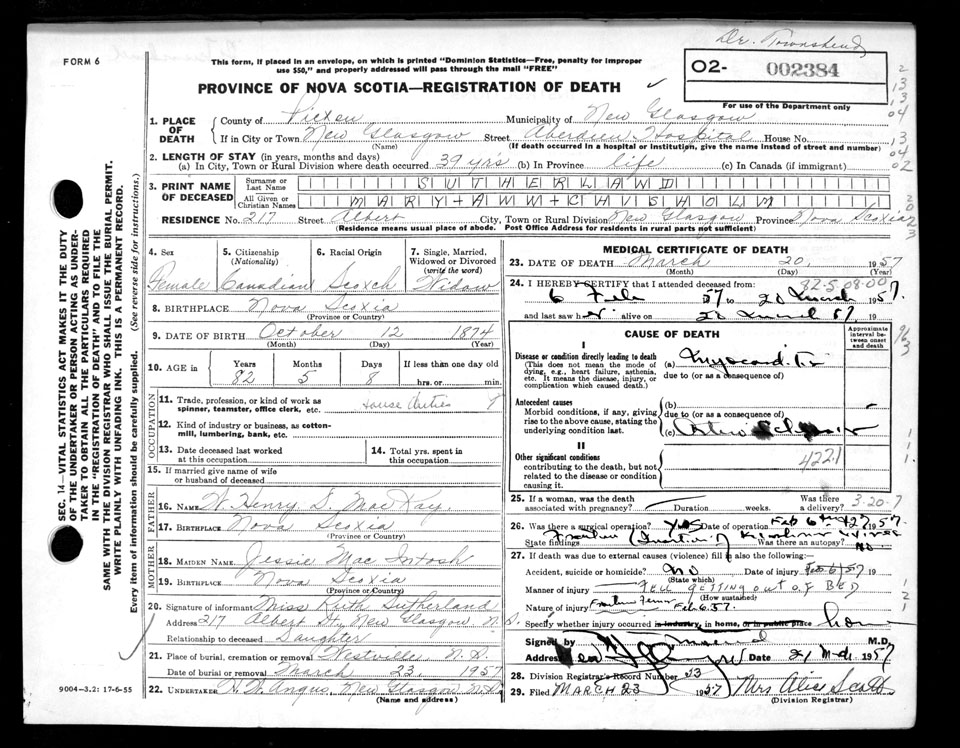 Dr. Townshend
FORM 6
This form, if placed in an envelope, on which is printed "Dominion Statistics—Free, penalty for improper
use $50," and properly addressed will pass through the mail "FREE"
O2- 002384
For use of the Department only
PROVINCE OF NOVA SCOTIA—REGISTRATION OF DEATH
1. PLACE OF DEATH County of Pictou Municipality of New Glasgow
If in City or Town New Glasgow Street Aberdeen Hospital House No.
(Name) (If death occurred in a hospital or institution, give the name instead of street and number)
2. LENGTH OF STAY (in years, months and days)
(a) In City, Town or Rural Division where death occurred 39 yrs (b) In Province life (c) In Canada (if immigrant)
3. PRINT NAME OF DECEASED Surname or Last Name SUTHERLAND
All Given or Christian Names MARY+ANN+CHISHOLM
RESIDENCE No. 217 Street Albert City, Town or Rural Division New Glasgow Province Nova Scotia
(Residence means usual place of abode. Post Office Address for residents in rural parts not sufficient)
4. Sex Female
5. Citizenship (Nationality) Canadian
6. Racial Origin Scotch
7. Single, Married, Widowed or Divorced (write the word) Widow
8. BIRTHPLACE Nova Scotia
(Province or Country)
9. DATE OF BIRTH October 12 1874
(Month) (Day) (Year)
10. AGE in Years 82 Months 5 Days 8 If less than one day old hrs. or min.
11. Trade, profession, or kind of work as spinner, teamster, office clerk, etc. House duties 9
12. Kind of industry or business, as cotton-mill, lumbering, bank, etc.
13. Date deceased last worked at this occupation
14. Total yrs. spent in this occupation
15. If married give name of wife or husband of deceased
OCCUPATION
FATHER
16. NAME W. Henry S. MacKay
17. BIRTHPLACE Nova Scotia
(Province or Country)
MOTHER
18. MAIDEN NAME Jessie MacIntosh
19. BIRTHPLACE Nova Scotia
(Province or Country)
20. Signature of informant Miss Ruth Sutherland
Address 217 Albert St., New Glasgow N.S.
Relationship to deceased Daughter
21. Place of burial, cremation or removal Westville N.S.
Date of burial or removal March 23, 1957
22. UNDERTAKER H. W. Angus, New Glasgow N.S.
(Name and address)
9004—3.2: 17-6-55
SEC. 14—VITAL STATISTICS ACT MAKES IT THE DUTY
OF THE UNDERTAKER OR PERSON ACTING AS UNDER-
TAKER TO OBTAIN ALL THE PARTICULARS REQUIRED
IN THE "REGISTRATION OF DEATH" AND TO FILE THE
SAME WITH THE DIVISION REGISTRAR WHO SHALL ISSUE THE BURIAL PERMIT.
WRITE PLAINLY WITH UNFADING INK. THIS IS A PERMANENT RECORD.
Every item of information should be carefully supplied. (See reverse side for instructions.)
MEDICAL CERTIFICATE OF DEATH
23. DATE OF DEATH March 20, 1957
(Month) (Day) (Year)
24. I HEREBY CERTIFY that I attended deceased from: 82-5-08-00
6 Feb 57 to 20 March 1957
and last saw h alive on 20 March 57 19
CAUSE OF DEATH
Approximate interval between onset and death
I
Disease or condition directly leading to death
(This does not mean the mode of dying, e.g., heart failure, asthenia, etc. It means the disease, injury, or complication which caused death.)
(a)
due to (or as a consequence of)
Antecedent causes
Morbid conditions, if any, giving rise to the above cause, stating the underlying condition last.
(b)
due to (or as a consequence of)
(c)
II
Other significant conditions
contributing to the death, but not related to the disease or condition causing it.
4221
25. If a woman, was the death associated with pregnancy? Duration weeks. Was there a delivery? 3-20-7
26. Was there a surgical operation? Yes Date of operation Feb 6 1957
State findings Was there an autopsy? No
27. If death was due to external causes (violence) fill in also the following:
Accident, suicide or homicide? No Date of injury Feb 6/57 19
(State which)
Manner of injury FELL GETTING OUT OF BED
(How sustained)
Nature of injury Feb 6.57.
Specify whether injury occurred in industry, in home, or in public place home
Signed by M.D.
Address Date 21 1957
28. Division Registrar's Record Number 53
29. Filed MARCH 23 1957 Mrs Alice Scott
(Division Registrar)